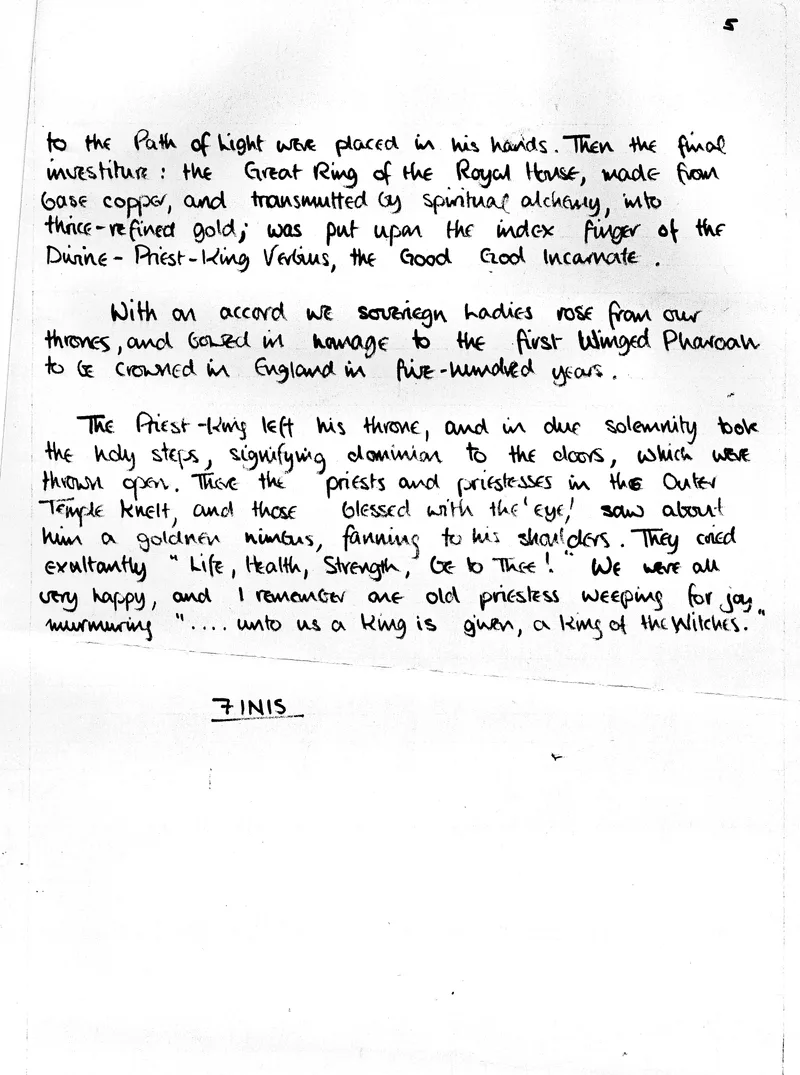 5
to the Path of Light were placed in his hands. Then the final
investiture: the Great Ring of the Royal House, made from
base copper, and transmutted by spiritual alchemy, into
thrice-refined gold; was put upon the index finger of the
Divine-Priest-King Verbius, the Good God Incarnate.
With an accord we soveriegn Ladies rose from our
thrones, and bowed in homage to the first Winged Pharoah
to be crowned in England in five-hundred years.
The Priest-King left his throne, and in due solemnity took
the holy steps, signifying dominion to the doors, which were
thrown open. There the priests and priestesses in the Outer
Temple knelt, and those blessed with the 'eye' saw about
him a goldnen nimbus, fanning to his shoulders. They cried
exultantly "Life, Health, Strength, be to Thee!" We were all
very happy, and I remember one old priestess weeping for joy
murmuring ".... unto us a King is given, a King of the Witches."
FINIS